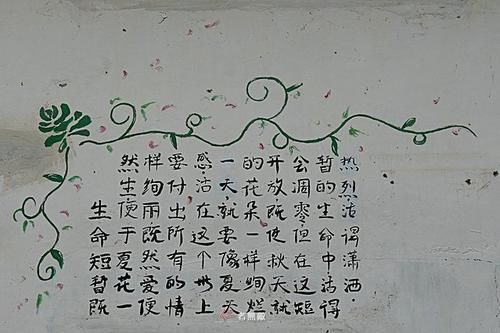 生命短暂既
然生便于夏花一
样绚丽既然爱便
要付出所有的情
感,活在这个世上
一天,就要像夏天
的花朵一样绚烂
开放既使秋天就
会凋零但在这短
暂的生命中活得
热烈活得潇洒.
者無敵